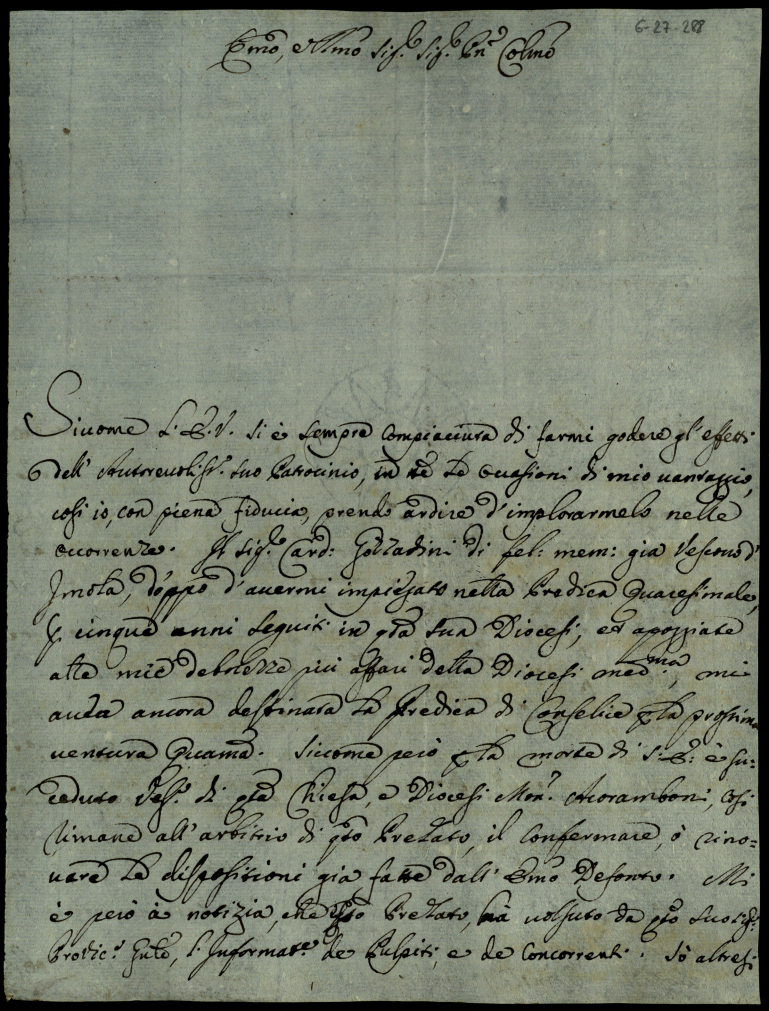 6-27-288
Emo, e Rmo Sig.e Sig.e Pn̄e Colmo
Siccome S. E. V. si è sempre compiaciuta di farmi godere gl'effetti
dell'Autorevoliss.o suo Patrocinio, in tẽ le occasioni di mio vantaggio,
così io, con piena fiducia, prendo ardire d'implorarmelo nelle
occorrenze. Il Sig.e Card: Gozzadini di fel: mem: già Vescovo d'
Imola, dóppo d'avermi impiegato nella Predica Quaresimale,
p cinque anni seguiti in q̃ta sua Diocesi, ed appoggiate
alle mie debolezze più affari della Diocesi med.ma, mi
avea ancora destinata la Predica di Conselice p la prossima
ventura Quarma. Siccome però p la morte di S. E. è su-
ceduto Vesc.o di q̃ta Chiesa, e Diocesi Mon.r Accoramboni, così
rimane all'arbitrio di q̃to Prelato, il confermare, ò rino-
vare le disposizioni già fatte dall'Emo Defonto. Mi
è però à notizia, che q̃to Prelato, hà volsuto da q̃to suo Sig.e
Provic.o Gnle, l'Informat.e de Pulpiti, e de Concorrenti. Sò altresì